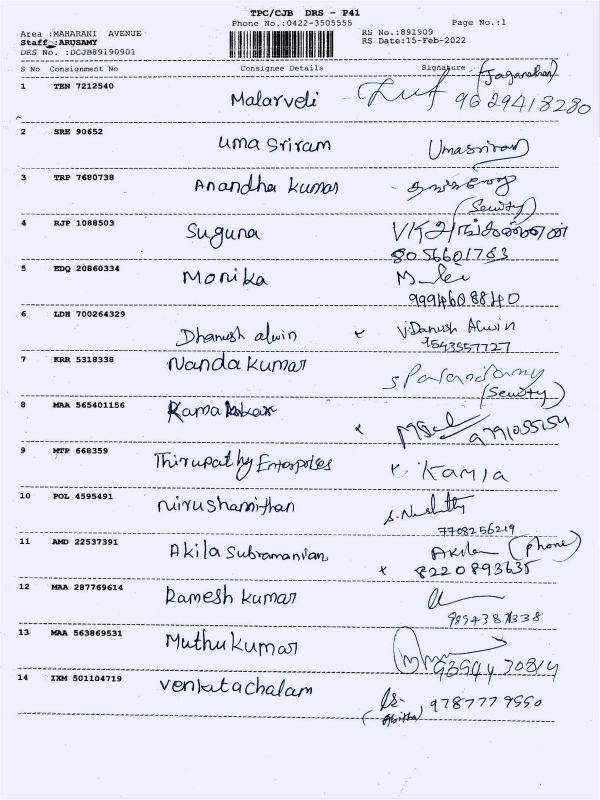 TPC/CJB DRS - P41
Phone No.:0422-3505555 Page No.:1
Area :MAHARANI AVENUE RS No.:891909
Staff :ARUSAMY RS Date:15-Feb-2022
DRS No. :DCJB89190901
S No Consignment No Consignee Details Signature
(Jaganathan)
1 TEN 7212540 Malarveli 9629418280
2 SRE 90652 Uma Sriram Umasriram
3 TRP 7680738 Anandha kumar
(Seurity)
4 RJP 1088503 Suguna
8056601783
5 EDQ 20860334 Monika
9994608840
6 LDH 700264329 Dhanush alwin x V.Danush Alwin
9543557727
7 KRR 5318338 Nanda kumar
(Seurity)
8 MAA 565401156 Rama x 9791055154
9 MTP 668359 Thirupathy Enterprises x Kamla
10 POL 4595491 nirushanithan
7708256219
11 AMD 22537391 Akila Subramanian Akila (phone)
x 8220893635
12 MAA 287769614 Ramesh kumar
13 MAA 563869531 Muthukumar
14 IXM 501104719 venkitachalam 9787779550